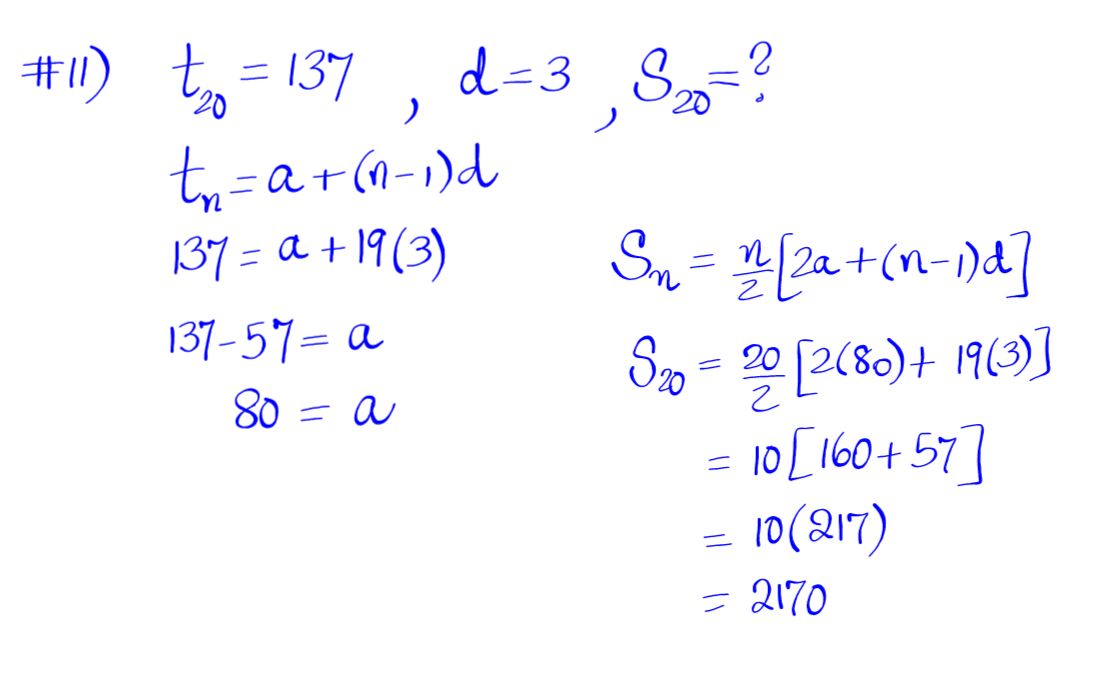 #11) t₂₀ = 137 , d = 3 , S₂₀ = ?
tₙ = a + (n-1)d
137 = a + 19(3)
137 - 57 = a
80 = a
Sₙ = n/2 [2a + (n-1)d]
S₂₀ = 20/2 [2(80) + 19(3)]
= 10[160 + 57]
= 10(217)
= 2170